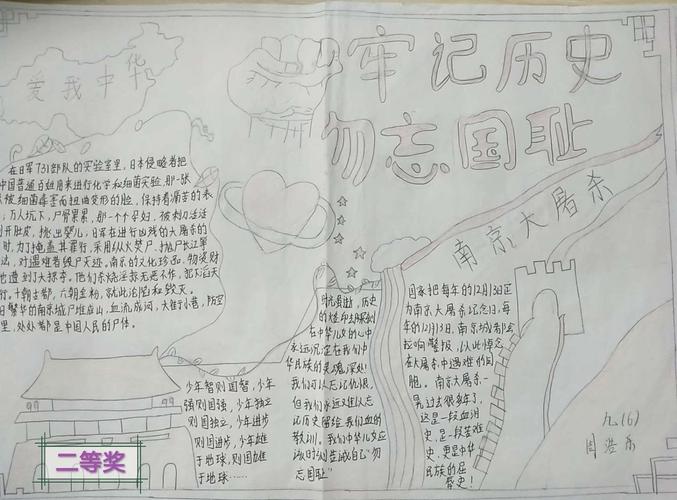 牢记历史
勿忘国耻
爱我中华
南京大屠杀
在日军731部队的实验室里，日本侵略者把
中国普通百姓用来进行化学和细菌实验，那一张
被细菌毒害而扭曲变形的脸，保持着痛苦的表
，万人坑下，尸骨累累，那一个个孕妇，被刺刀活活
开肚皮，挑出婴儿，日军在进行凶残的大屠杀的
时，为了掩盖其罪行，采用纵火焚尸、抛尸长江等
法，对遇难者毁尸灭迹。南京的文化珍品，物资财
遭到了大掠夺。他们杀烧淫掠无恶不作，犯下滔天
行。十朝古都，六朝金粉，就此沦陷和毁灭。
日繁华的南京城尸堆应山，血流成河，大街小巷，防空
里，处处都是中国人民的尸体。
少年智则国智，少年
强则国强，少年独立
则国独立，少年进步
则国进步，少年雄
于地球，则国雄
于地球……
历史
在中华儿女的心中
永远沉淀在我们中
华民族的灵魂深处！
我们可以忘记仇恨，
但我们永远难以忘
记历史留给我们血的
教训。我们中华儿女应
该时刻告诫自己“勿
忘国耻”
国家把每年的12月13日定
为南京大屠杀纪念日，每
年的12月13日，南京城都会
拉响警报，以此悼念
在大屠杀中遇难的同
胞。南京大屠杀
过去很多年了，
这是一段血泪
史，是一段苦难
史，更是中华
民族的屈
辱史！
九（6）
二等奖